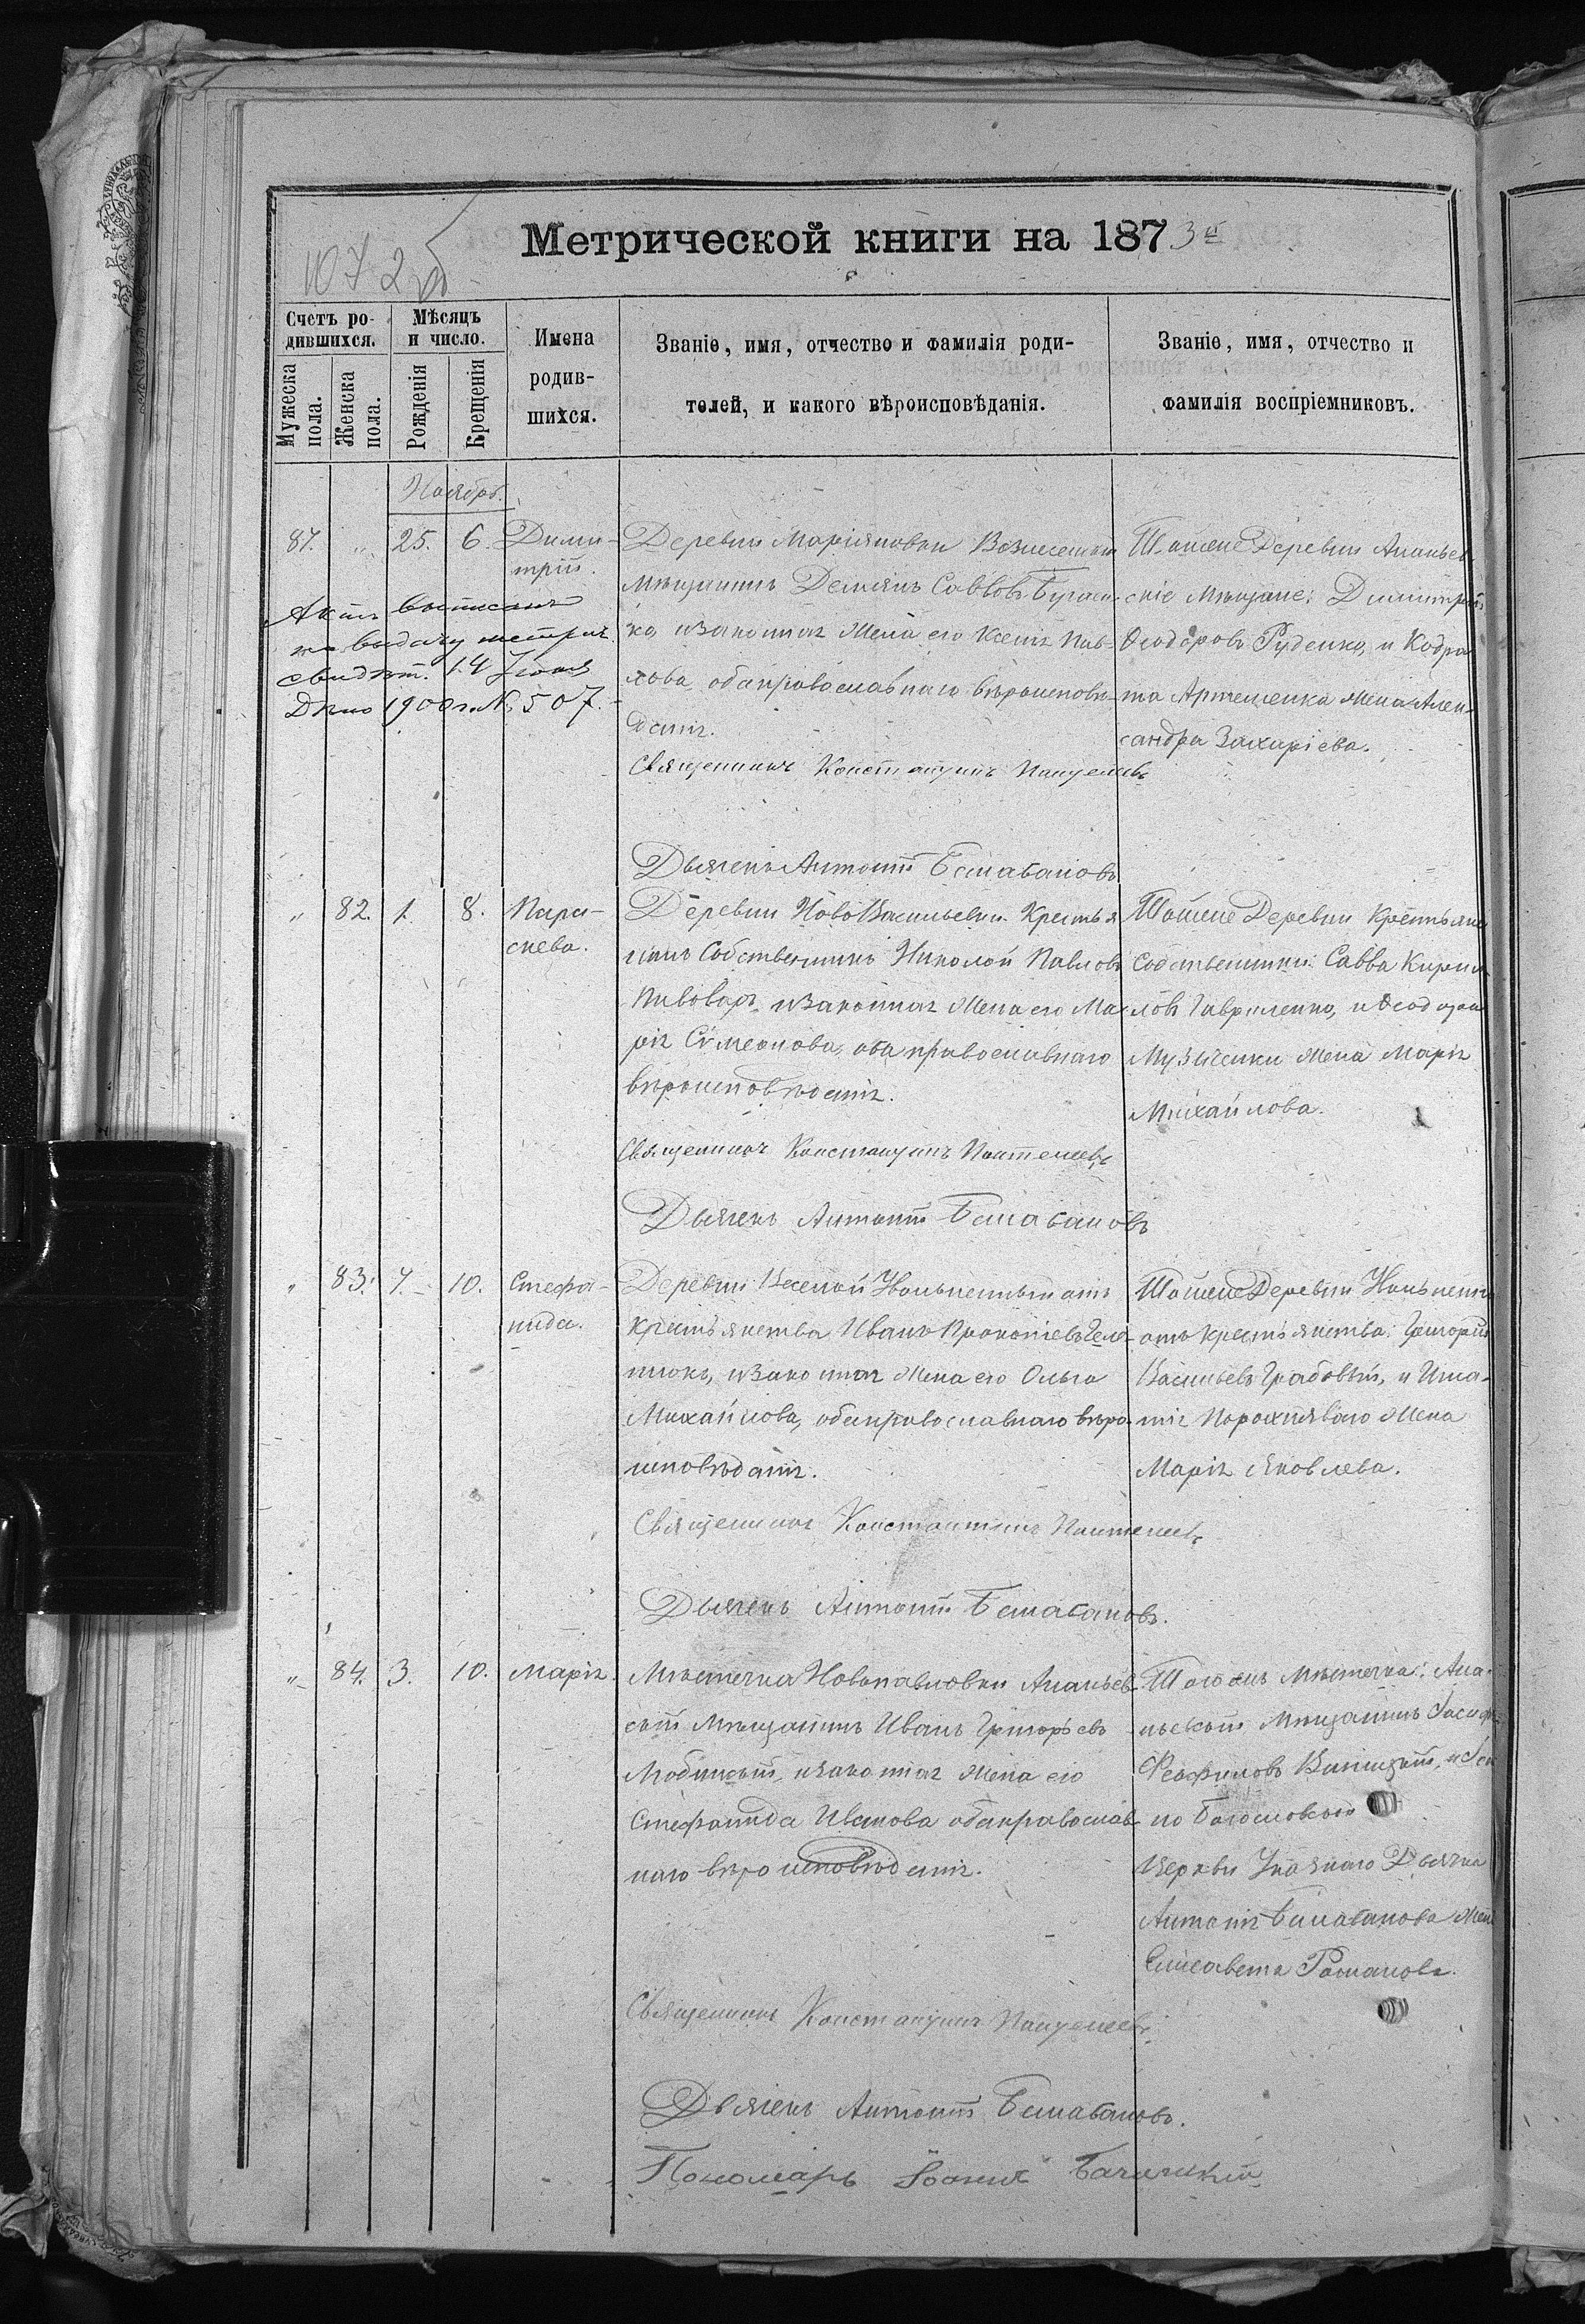 Метрической книги на 1873й
1072 об
Счетъ ро-
дившихся.
Мужеска пола.
Женска пола.
Мѣсяцъ
и число.
Рожденія
Крещенія
Имена
родив-
шихся.
Званіе, имя, отчество и фамилія роди-
телей, и какого вѣроисповѣданія.
Званіе, имя, отчество и
фамилія воспріемниковъ.
Ноябрь.
87. „ 25. 6. Дими-
трій.
Актъ выписанъ
на выдачу метрич.
свидѣт. 14 Іюля
Дѣло 1900 г. № 507.
Деревни Маріяновки Вознесенскій
мѣщанинъ Деміянъ Саввовъ
ко, и законная жена его Ксенія Пав-
лова, оба православнаго вѣроисповѣ-
данія.
Священникъ Константинъ Пантелеевъ
Дьячекъ Антоній Балабановъ
Тойже Деревни Ананьев-
скіе мѣщане: Димитрій
Ѳеодоровъ Руденко, и Кодра-
та Артеменка жена Алек-
сандра Захаріева.
„ 82. 1. 8. Пара-
скева.
Деревни НовоВасильевки Крестья
нинъ Собственникъ Николай Павловъ
Пивоваръ, и законная жена его Ма-
рія Сѵмеонова, оба православнаго
вѣроисповѣданія.
Священникъ Константинъ Пантелеевъ
Дьячекъ Антоній Балабановъ
Тойже Деревни Крестьяне
Собственники: Савва Кирил
ловъ Гавриленко, и Ѳеодора
Музыченки жена Марія
Михайлова.
„ 83. 7. 10. Стефа-
нида.
Деревни Веселой Уволенный отъ
крестьянства Иванъ Прокопіевъ
нюкъ, и законная жена его Ольга
Михайлова, оба православнаго вѣро-
исповѣданія.
Священникъ Константинъ Пантелеевъ
Дьячекъ Антоній Балабановъ.
Тойже Деревни Уволенный
отъ крестьянства: Григорій
Васильевъ Грабовый, и Игна-
тія Порохняваго жена
Марія Яковлева.
„ 84. 3. 10. Марія.
Мѣстечка Новопавловки Ананьев-
скій мѣщанинъ Иванъ Григорьевъ
и законная жена его
Стефанида Иванова оба православ-
наго вѣроисповѣданія.
Священникъ Константинъ Пантелеевъ
Дьячекъ Антоній Балабановъ.
Пономарь Іоаннъ
Тогожъ мѣстечка: Ана-
ньевскій мѣщанинъ Іосифъ
Винницкій, и
но Богословской
церкви Указнаго Дьячка
Антонія Балабанова жена
Елисавета Романова.